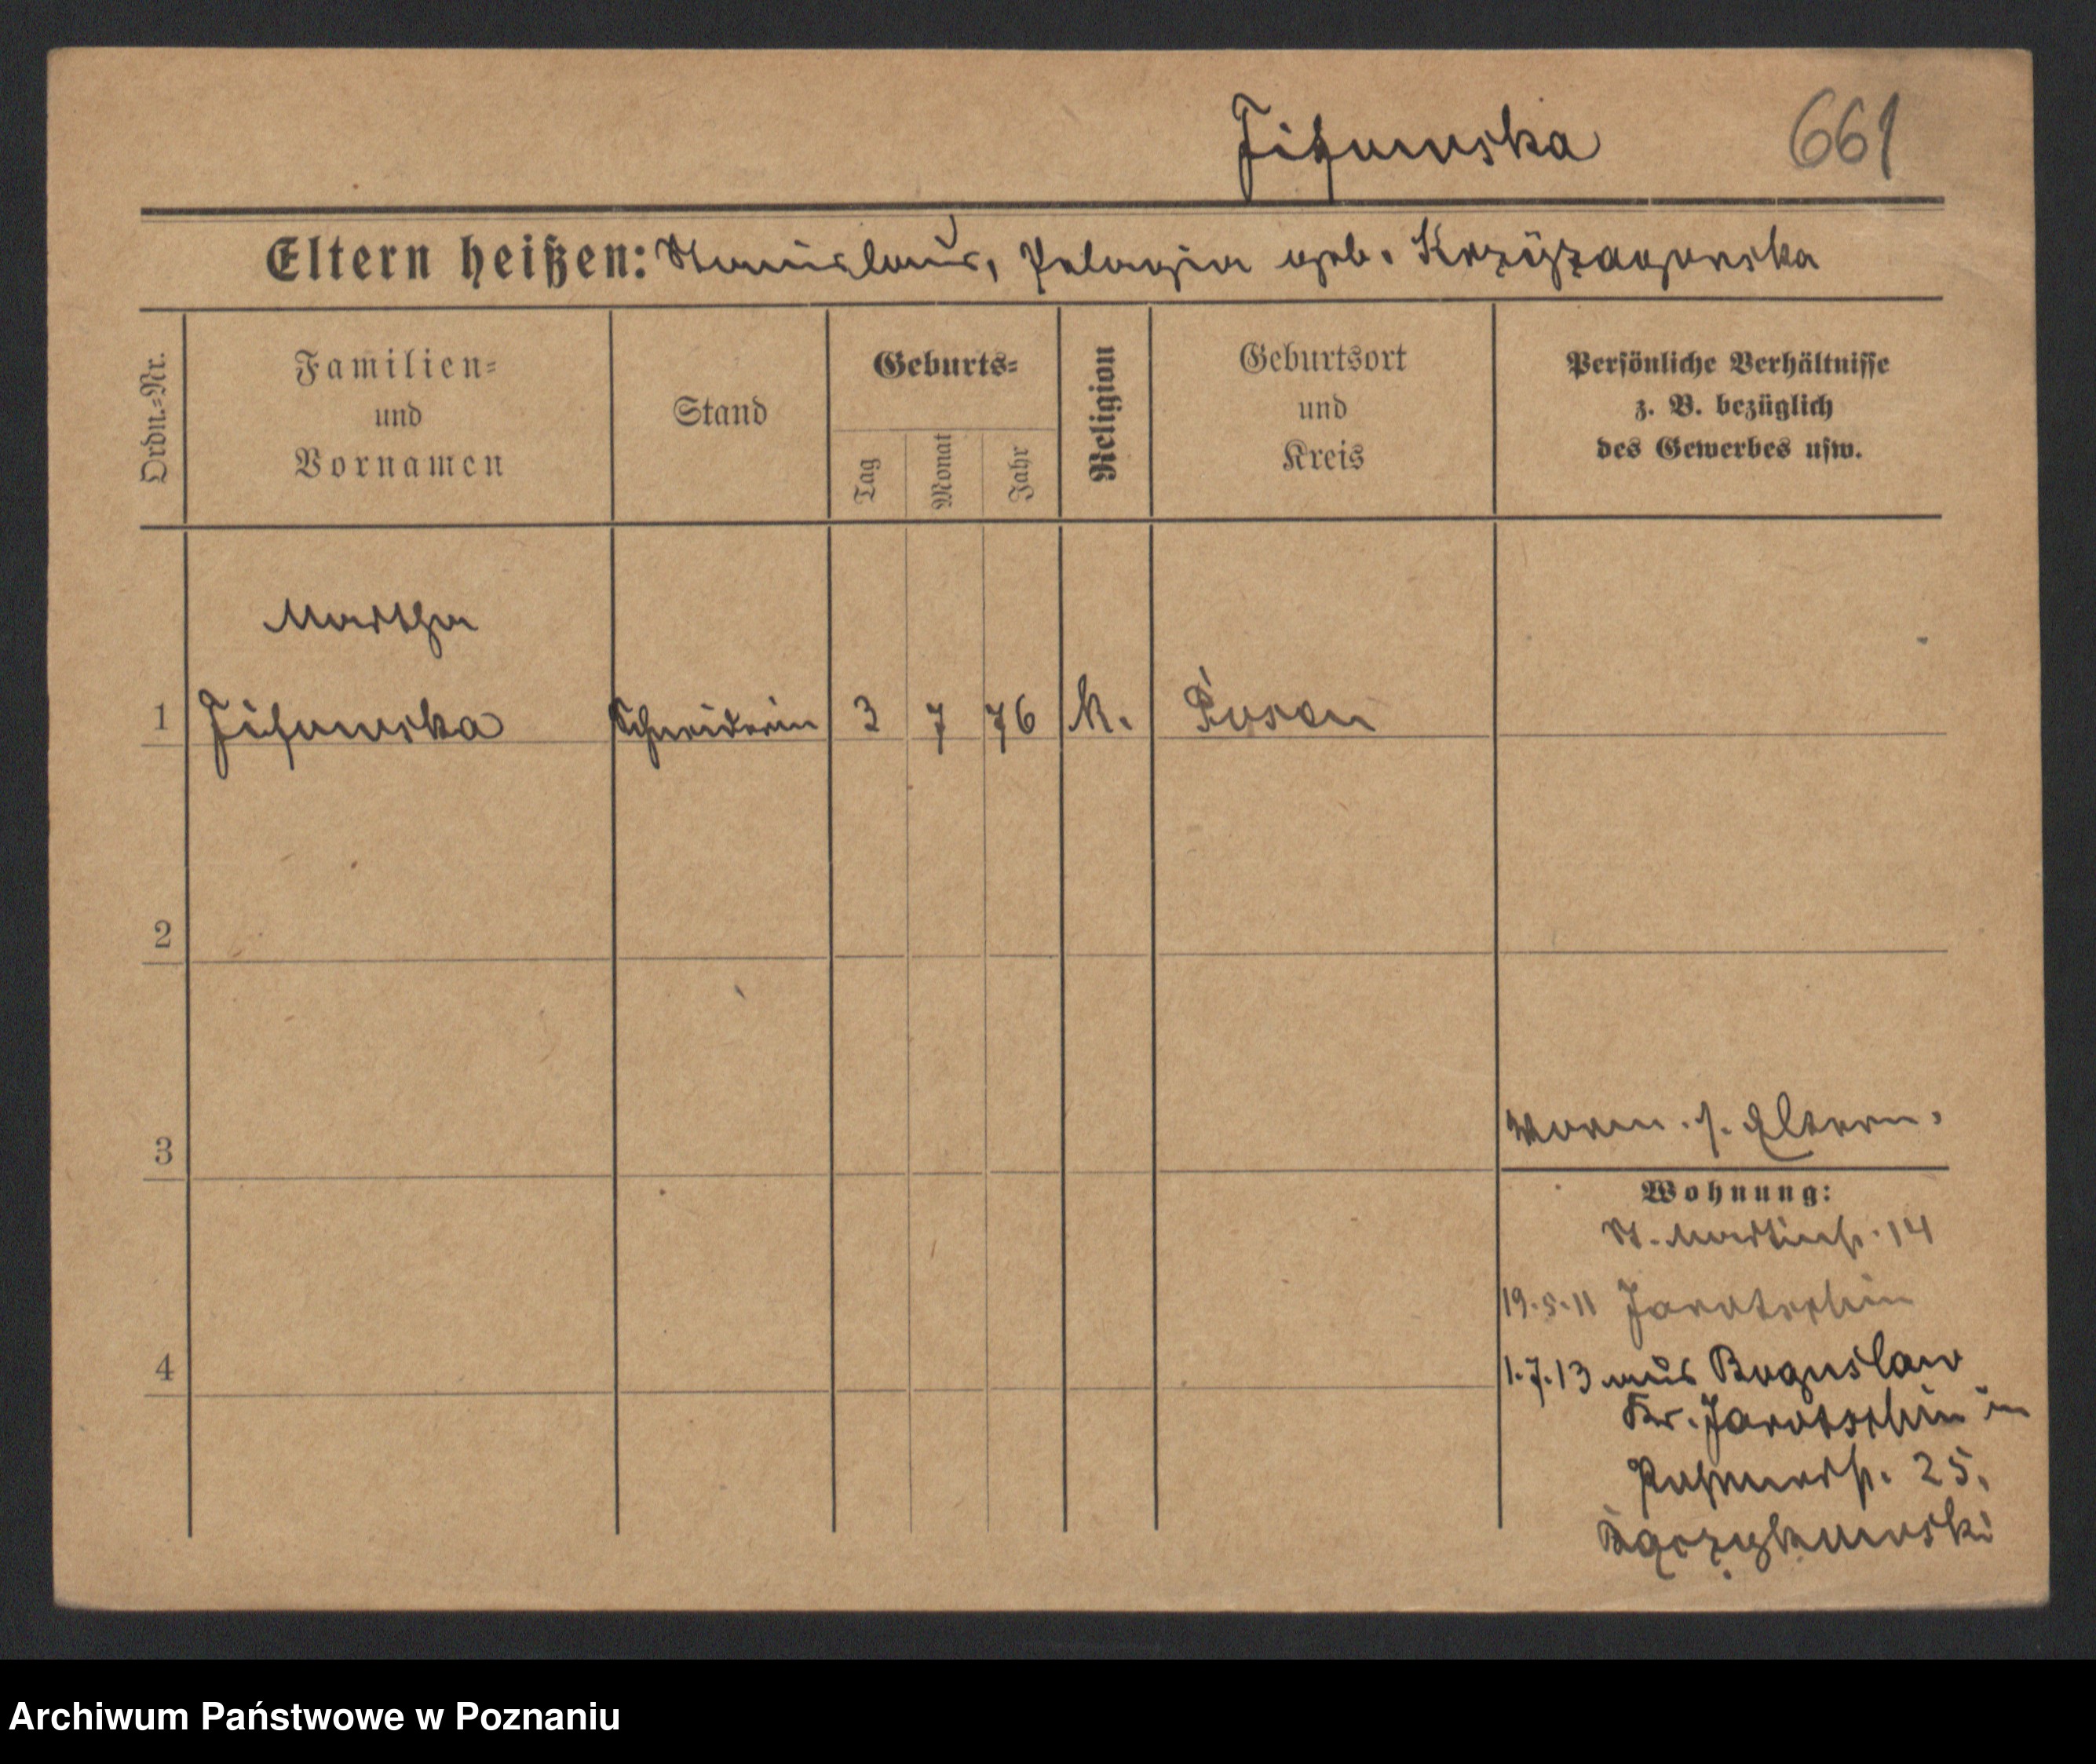 661
Eltern heißen: Stanislaus, Pelagia geb. Krzyżagorska
Ordn.=Nr.
Familien=
und
Vornamen
Stand
Geburts=
Tag
Monat
Jahr
Religion
Geburtsort
und
Kreis
Persönliche Verhältnisse
z. B. bezüglich
des Gewerbes usw.
Martha
1 Schneiderin 3 7 76 k. Posen
2
3
s. Eltern.
Wohnung:
St. Martinstr. 14
19.5.11 Jarotschin
4
1.7.13 aus Boguslaw
Kr. Jarotschin in
25.
Archiwum Państwowe w Poznaniu